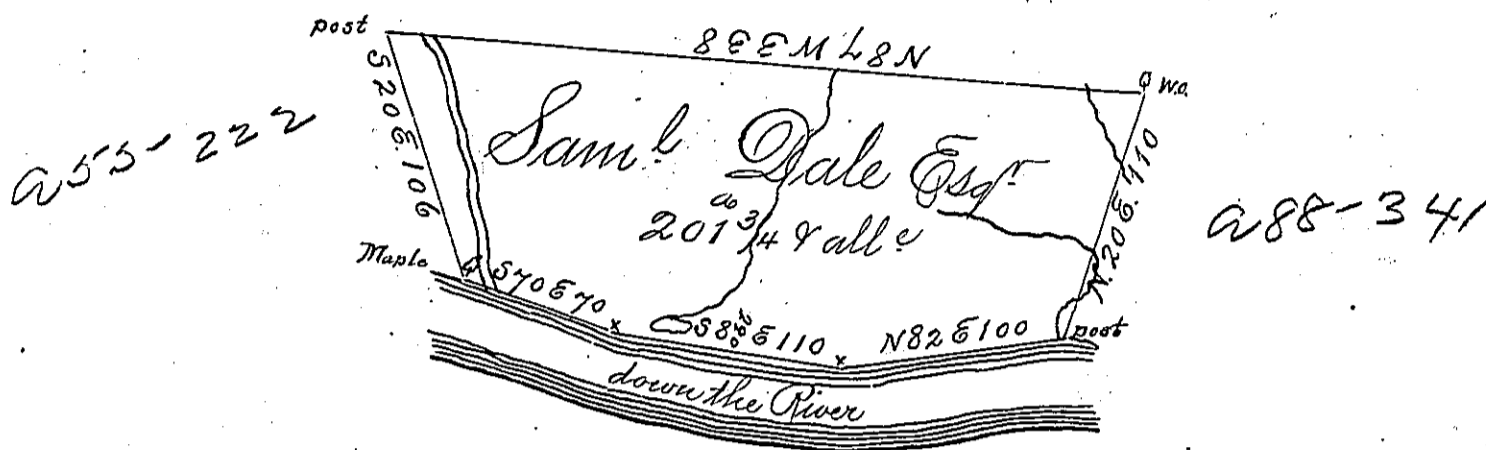 post
N87W338
W.O.
S20E.106
a55-222
Saml. Dale Esqr.
201 3/4 & allc
N.20E.110
a88-341
Maple
S70E70
S8 E110
N82E100
post
down the River